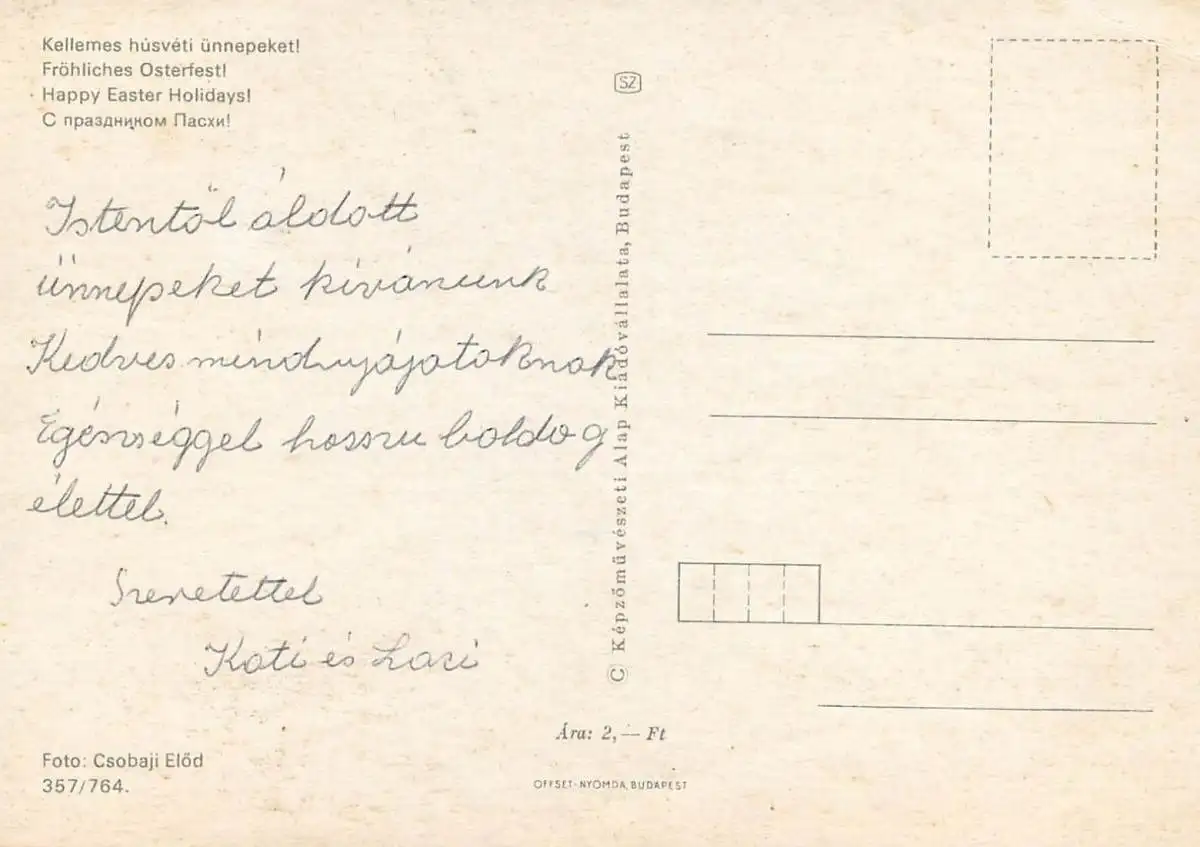 Kellemes húsvéti ünnepeket!
Fröhliches Osterfest!
Happy Easter Holidays!
С праздником Пасхи!
Istentől áldott
ünnepeket kívánunk
Kedves mindnyájatoknak
Egésséggel hosszu boldog
élettel.
Szeretettel
Kati és Laci
Foto: Csobaji Előd
357/764.
SZ
© Képzőművészeti Alap Kiadóvállalata, Budapest
Ára: 2,— Ft
OFFSET-NYOMDA, BUDAPEST